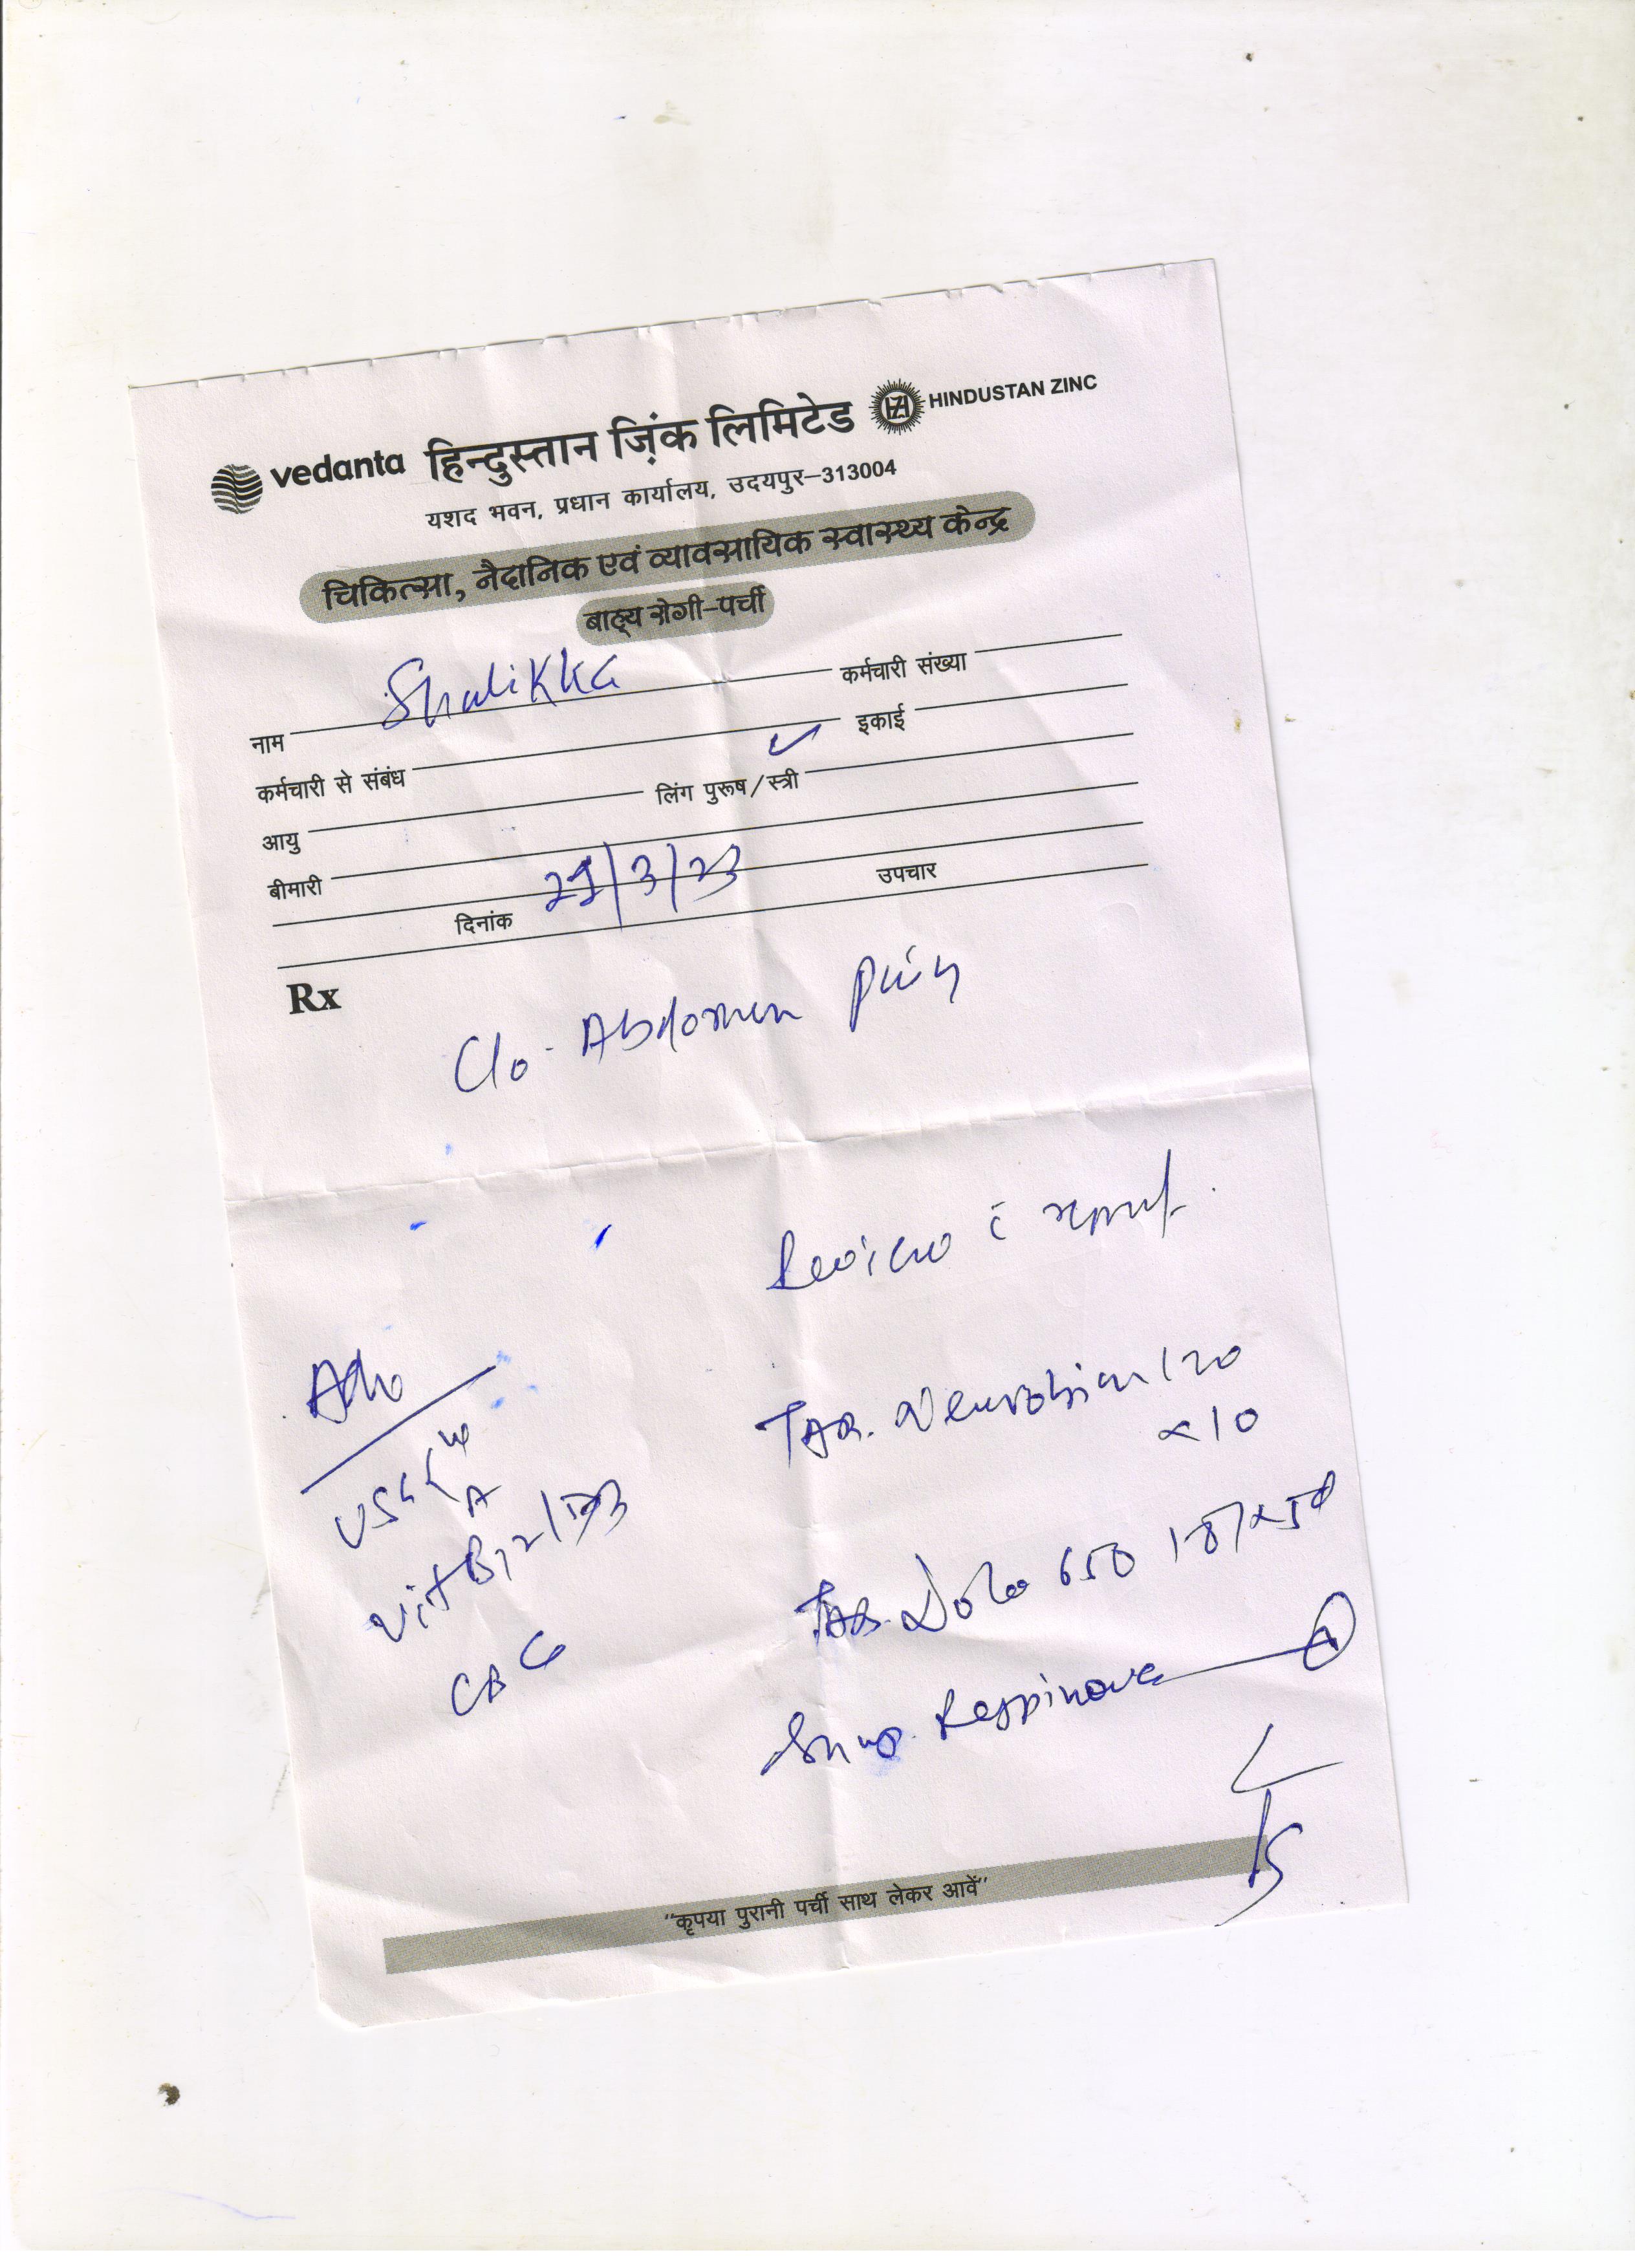 vedanta हिन्दुस्तान ज़िंक लिमिटेड HINDUSTAN ZINC
यशद भवन, प्रधान कार्यालय, उदयपुर–313004
चिकित्सा, नैदानिक एवं व्यावसायिक स्वास्थ्य केन्द्र
बाह्य रोगी–पर्ची
नाम Shalikka कर्मचारी संख्या
कर्मचारी से संबंध इकाई
आयु लिंग पुरूष/स्त्री ✓
बीमारी
दिनांक /3/23 उपचार
Rx
C/o - Abdomen pain
Review c̄ report.
Adv
USG W
A
Vit B12/D3
CBC
TAB. Neurobion 120
x10
TAB. Dolo 650
Syrup. Respinova 1
"कृपया पुरानी पर्ची साथ लेकर आवें"